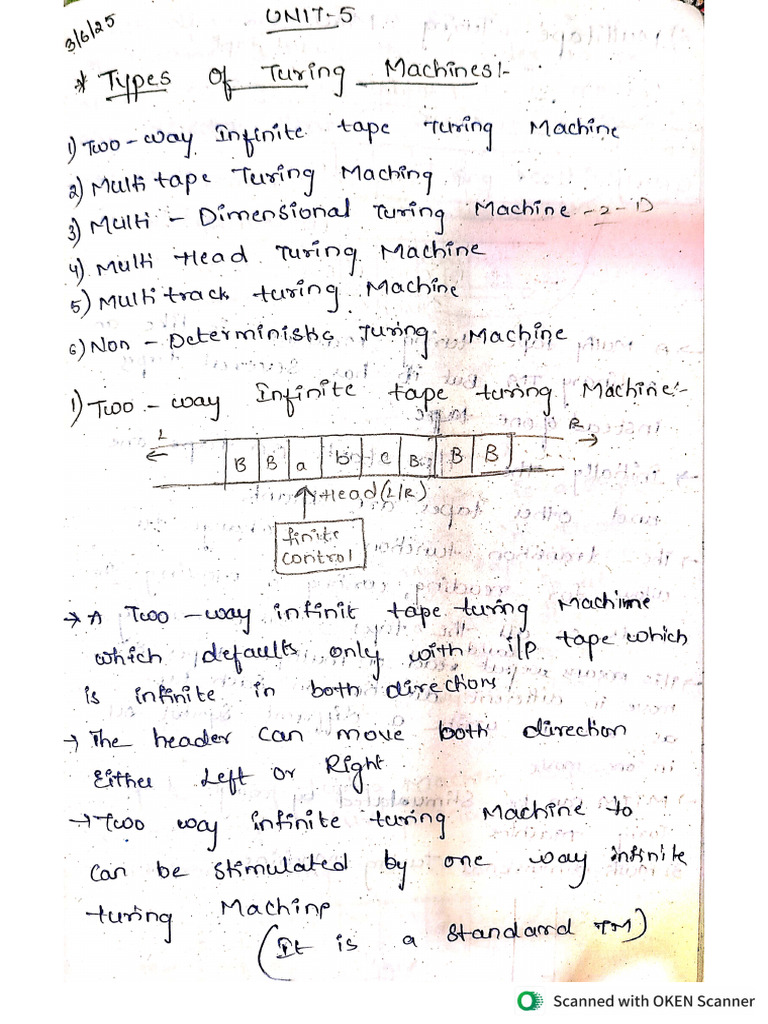 3/6/25
UNIT-5
* Types of Turing Machines:-
1) Two-way Infinite tape Turing Machine
2) Multi tape Turing Maching
3) Multi - Dimensional Turing Machine - 2-D
4) Multi Head Turing Machine
5) Multi track turing Machine
6) Non - Deterministic Turing Machine
1) Two - way Infinite tape turing Machine:-
L R
B B a b c B B B
Head (L/R)
finite
control
→ A Two -way infinit tape turing Machime
which defaults only with i/p tape which
is infinite in both directions
→ The header can move both direction
Either Left or Right
→ Two way infinite turing Machine to
can be stimulated by one way infinite
turing Machine
(It is a standard TM)
Scanned with OKEN Scanner